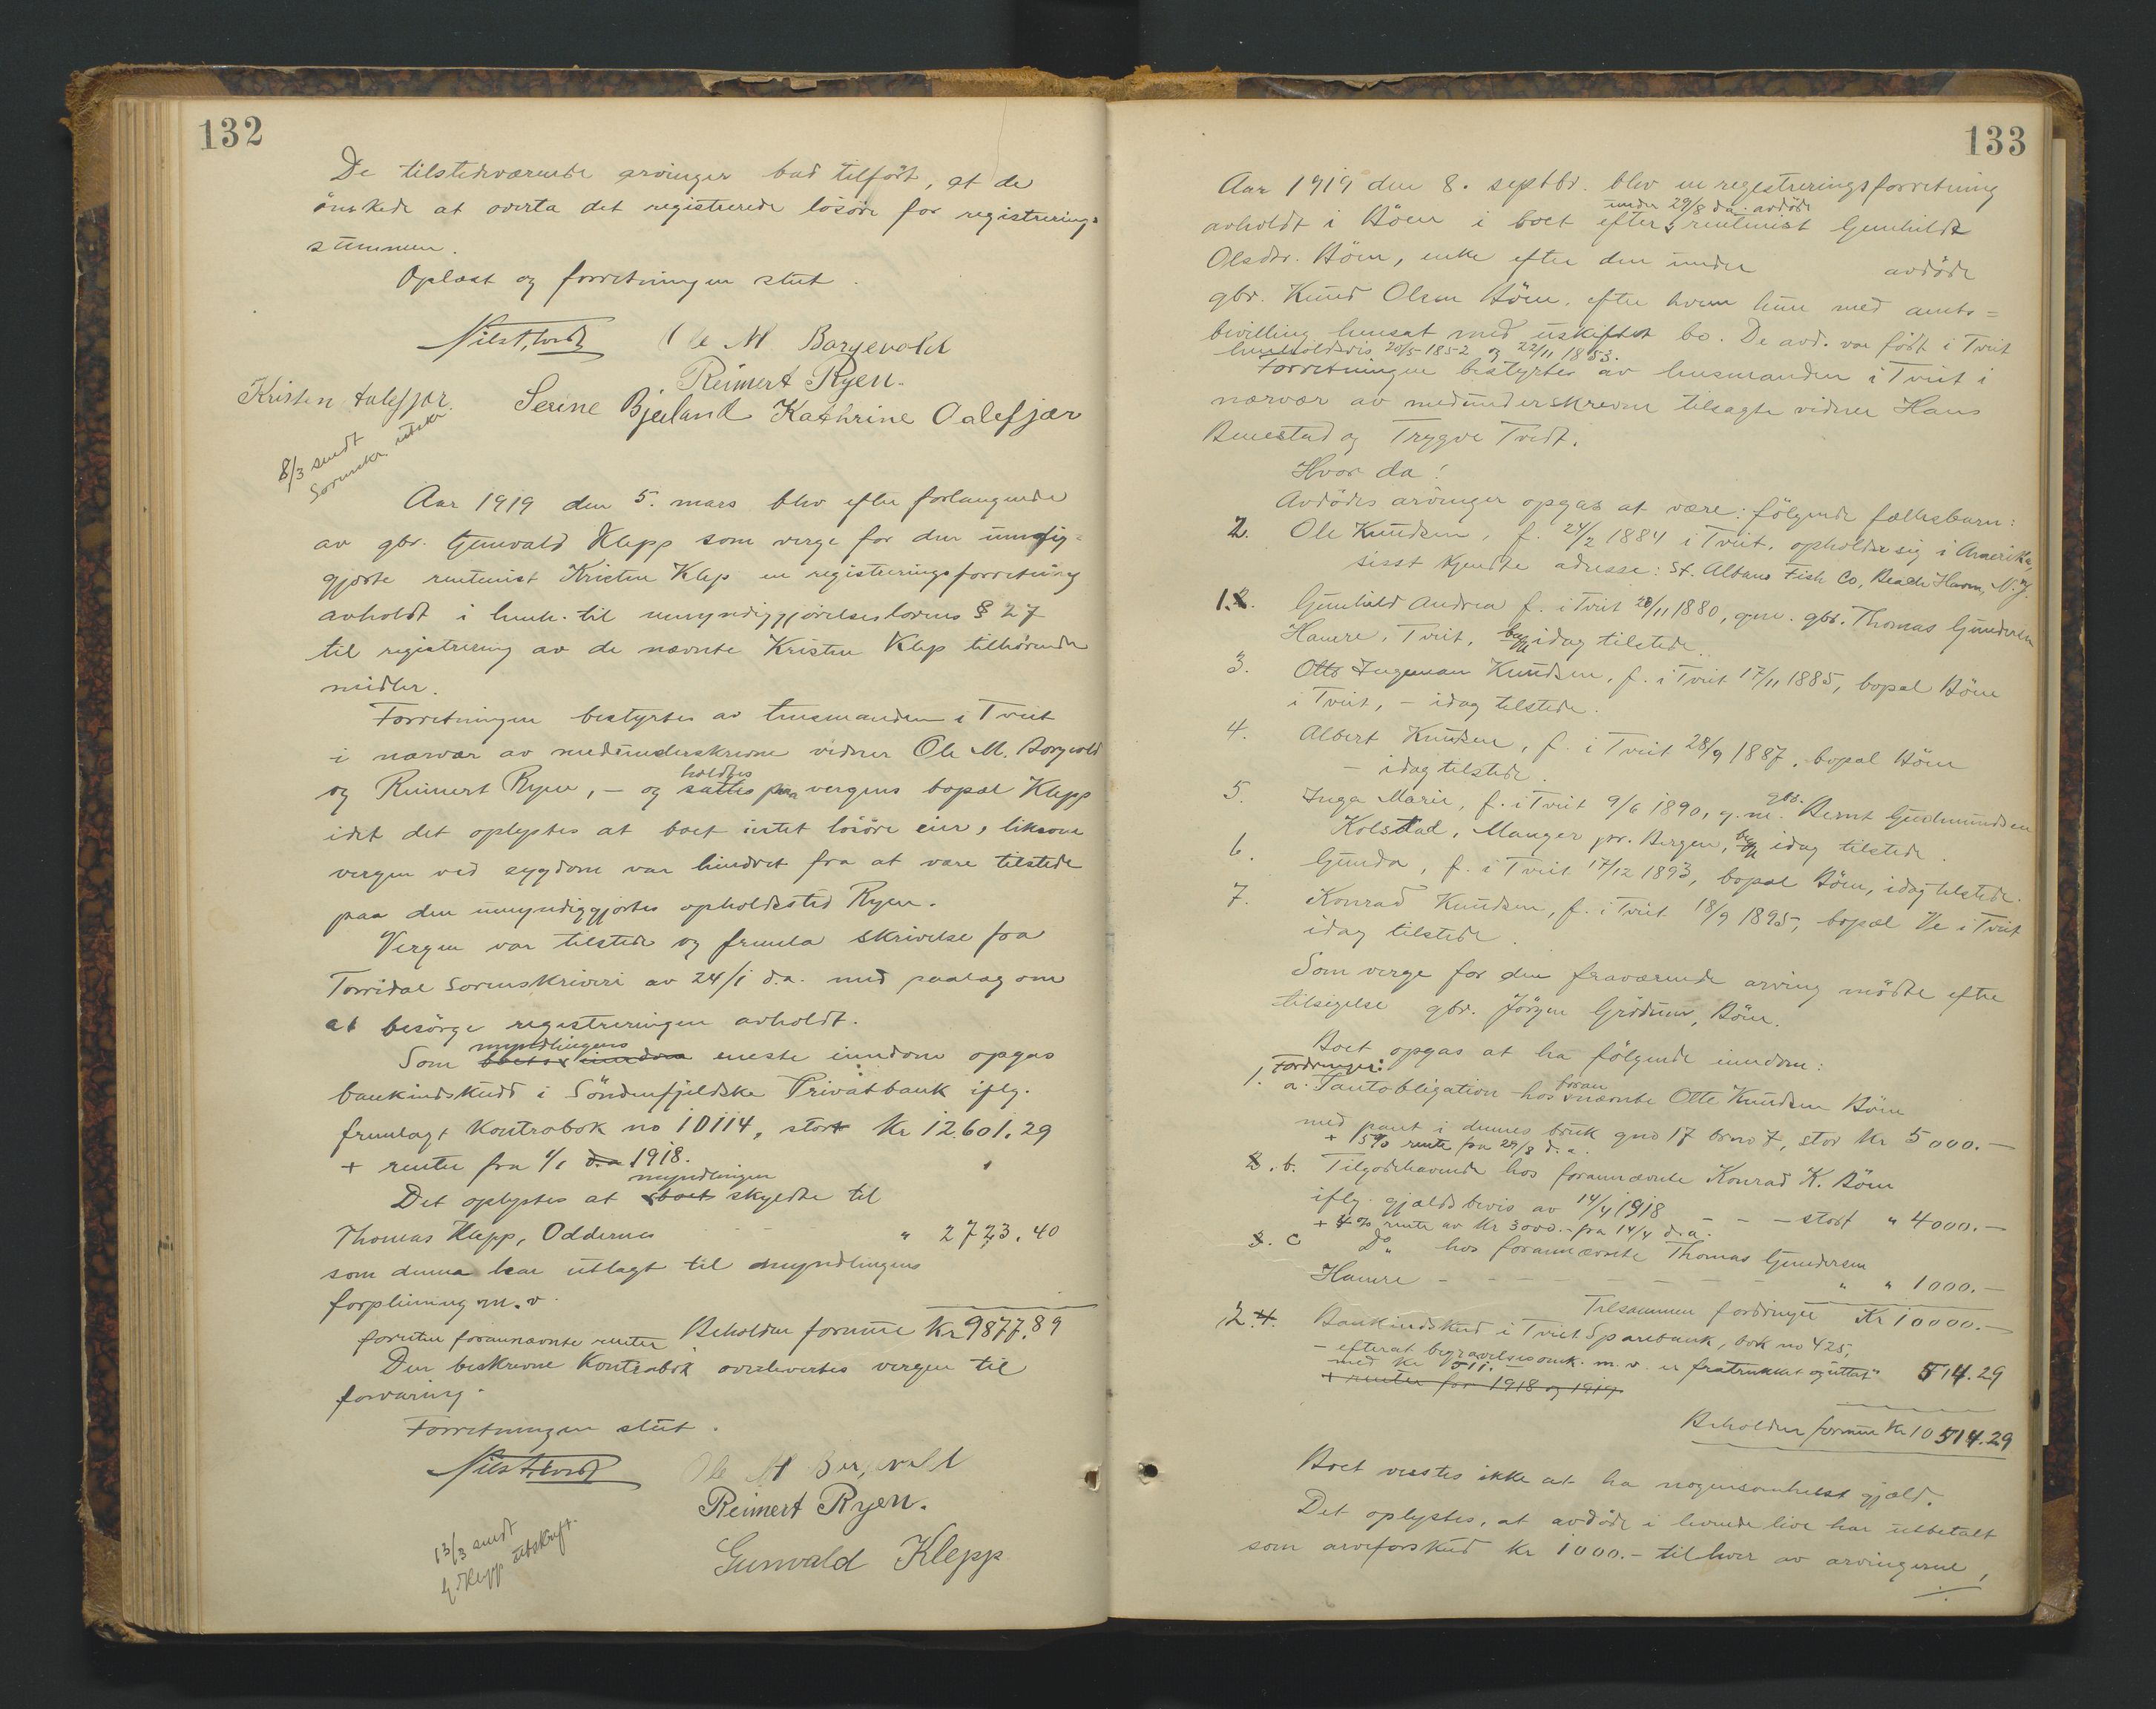 132
De tilstedeværende arvinger bad tilført, at de
ønskede at overta det registrerede løsøre for registrerings-
summen.
Oplæst og forretningen slut.
Ole M Borgevold
Reimert Ryen.
Kristen Aalefjær. Serine Bjelland Kathrine Aalefjær
8/3 sendt
Sorenskr. utskr.
Aar 1919 den 5. mars blev efter forlangende
av gbr. Gunvald Klepp som verge for den umyndig-
gjorte rentenist Kristen Klep en registreringsforretning
avholdt i henh. til umyndiggjørelseslovens § 27
til registrering av de nævnte Kristen Klep tilhørende
midler.
Forretningen bestyrtes av lensmanden i Tveit
i nærvær av medunderskrevne vidner Ole M. Borgevold
og Reimert Ryen, – og sattes paa holdtes vergens bopæl Klepp
idet det oplystes at boet intet løsøre eier, liksom
vergen ved sygdom var hindret fra at være tilstede
paa den umyndiggjortes opholdssted Ryen.
Vergen var tilstede og fremla skrivelse fra
Torridal Sorenskriveri av 24/1 d.a. med paalag om
at besørge registreringen avholdt.
myndlingens
Som boets eiendom eneste eiendom opgas
bankindskudd i Søndenfjeldske Privatbank iflg.
fremlagt Kontrabok no 10114, stort Kr 12.601.29
+ renter fra 1/1 d.a. 1918.
myndlingen
Det oplystes at boet skyldte til
Thomas Klepp, Oddernes " 2723.40
som denne har utlagt til myndlingens
forpleining m.v.
foruten forannævnte renter Beholden formue Kr 9877.89
Den beskrevne Kontrabok overlevertes vergen til
forvaring.
Forretningen slut.
Ole M Borgevold
Reimert Ryen.
Gunvald Klepp
13/3 sendt
G. Klepp utskrift.
133
Aar 1919 den 8. septbr. blev en registreringsforretning
under 29/8 d.a. avdøde
avholdt i Bøen i boet efter rentenist Gunhild
Olsdtr. Bøen, enke efter den under avdøde
gbr. Knud Olsen Bøen, efter hvem hun med amts-
bevilling hensat med uskiftet bo. De avd. var født i Tveit
henholdsvis 20/5 1852 og 22/11 1853.
Forretningen bestyrtes av lensmanden i Tveit i
nærvær av medunderskrevne tilsagte vidner Hans
Benestad og Trygve Tvedt.
Hvor da!
Avdødes arvinger opgas at være: følgende fællesbarn:
2. Ole Knudsen, f. 24/2 1884 i Tveit, opholder sig i Amerika,
sisst kjendte adresse: St. Albans Fish Co, Beach Haven, N.J.
1. Gunhild Andrea f. i Tveit 20/11 1880, g.m. gbr. Thomas Gundersen
Hamre, Tveit, begge idag tilstede.
3. Otto Ingeman Knudsen, f. i Tveit 17/11 1885, bopæl Bøen
i Tveit, – idag tilstede.
4. Albert Knudsen, f. i Tveit 28/9 1887, bopæl Bøen
– idag tilstede.
5. Inga Marie, f. i Tveit 9/6 1890, g.m. gbr. Bernt Gudmundsen
Kolstad, Manger pr. Bergen, begge idag tilstede.
6. Gunda, f. i Tveit 17/12 1893, bopæl Bøen, idag tilstede.
7. Konrad Knudsen, f. i Tveit 18/9 1895, bopæl Ve i Tveit
idag tilstede.
Som verge for den fraværende arving mødte efter
tilsigelse gbr. Jørgen Grødum, Bøen.
Boet opgas at ha følgende eiendom:
1. Fordringer:
a. Pantobligation hos forannævnte Otto Knudsen Bøen
med pant i dennes bruk gno 17 brno 7, stor Kr 5000.–
+ 5% rente fra 29/8 d.a.
2. b. Tilgodehavende hos forannævnte Konrad K. Bøen
iflg. gjældsbevis av 14/4 1918 – – – stort " 4000.–
+ 4% rente av Kr 3000.– fra 14/4 d.a.
3. c Do hos forannævnte Thomas Gundersen
Hamre – – – – – – – – " " 1000.–
Tilsammen fordringer Kr 10000.–
2. 4. Bankindskud i Tveit Sparebank, bok no 425,
– efterat begravelsesomk. m.v. er fratrukket og uttat
med Kr 511. " 514.29
+ renter fra 1918 og 1919
Beholden formue Kr 10514.29
Boet vistes ikke at ha nogensomhelst gjæld.
Det oplystes, at avdøde i levende live har utbetalt
som arveforskud Kr 1000.– til hver av arvingerne,